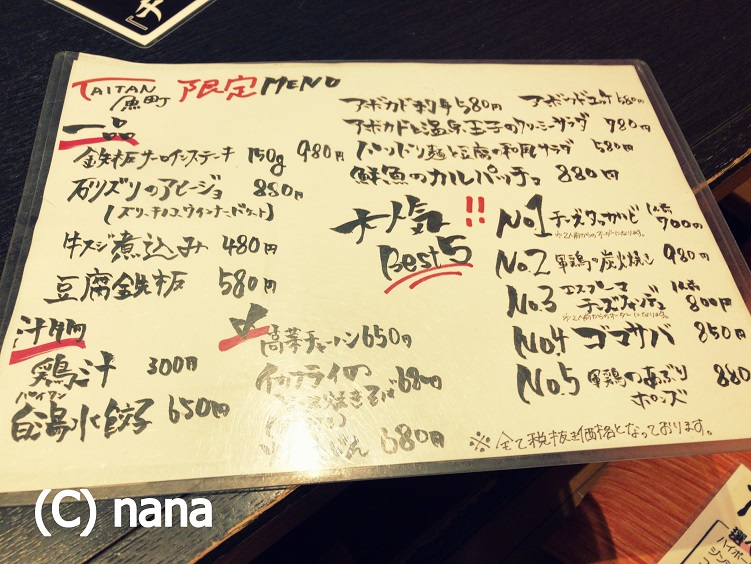 TAITAN 魚町 限定 MENU
一品
鉄板サーロインステーキ 150g 980円
砂ズリのアヒージョ 880円
牛スジ煮込み 480円
豆腐鉄板 580円
汁物
鶏汁 300円
パイタン
白湯水餃子 650円
〆
高菜チャーハン 650円
680円
アボカド刺身 580円
アボカドユッケ 580円
アボカドと温泉玉子のクリーミーサラダ 780円
パリパリ麺と豆腐の和風サラダ 580円
鮮魚のカルパッチョ 880円
大人気!!
Best5
No.1 チーズタッカルビ 1人前 700円
※2人前からのオーダーになります。
No.2 軍鶏の炭火焼き 980円
No.3 エスプーマチーズフォンデュ 1人前 800円
※2人前からのオーダーになります。
No.4 ゴマサバ 850円
No.5 軍鶏のあぶりポンズ 880
※全て税抜き価格となっております。
(C) nana